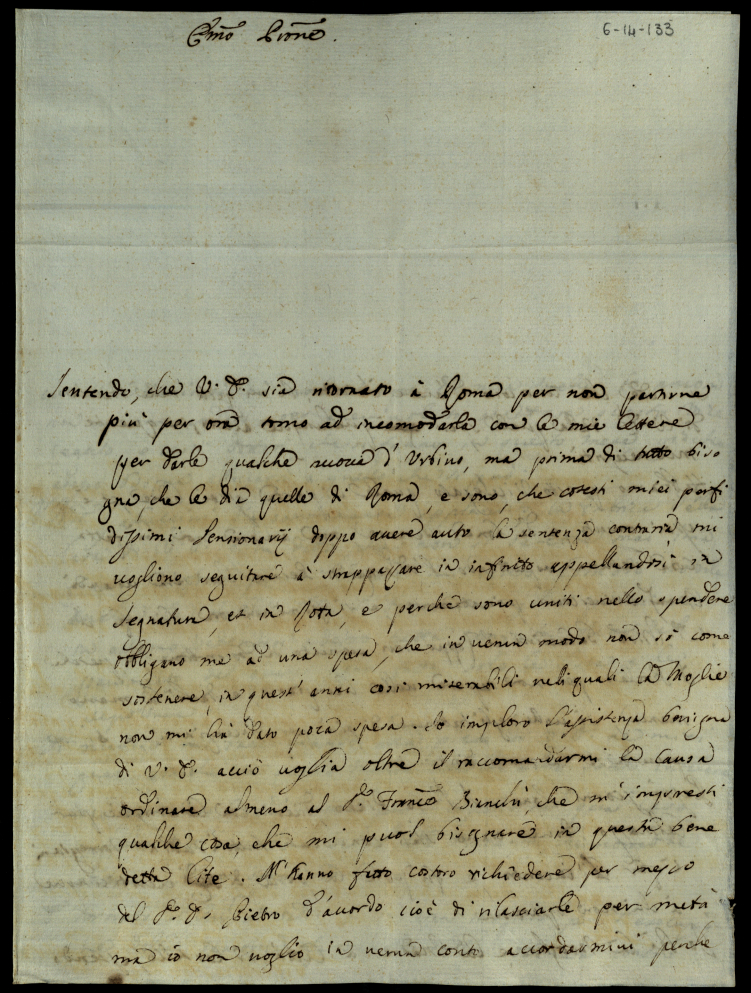 6-14-133
Cmo Prone.
Sentendo, che V. S. sia ritornato à Roma per non partirne
più per ora torno ad incomodarla con le mie lettere
per darle qualche nuova d'Urbino, ma prima di tutto biso
gna, che le dia quelle di Roma, e sono, che cotesti miei perfi
dissimi Pensionarij doppo avere auto la sentenza contraria mi
vogliono seguitare à strappazzare in infinito appellandosi in
Segnatura, et in Rota, e perche sono uniti nello spendere
obbligano me ad una spesa, che in verun modo non sò come
sostenere, in quest'anni così miserabili neli quali la Moglie
non mi hà dato poca spesa. Io imploro l'assistenza benigna
di V. S. acciò voglia oltre il raccomandarmi la Causa
ordinare almeno al S.r Franco Bianchi, che m'impresti
qualche cosa, che mi puol bisognare in questa bene
detta lite. M'hanno fatto costoro richiedere per mezzo
del S.r D. Pietro d'acordo cioè di rilasciarle per metà
ma io non voglio in verun conto accordarmivi perche